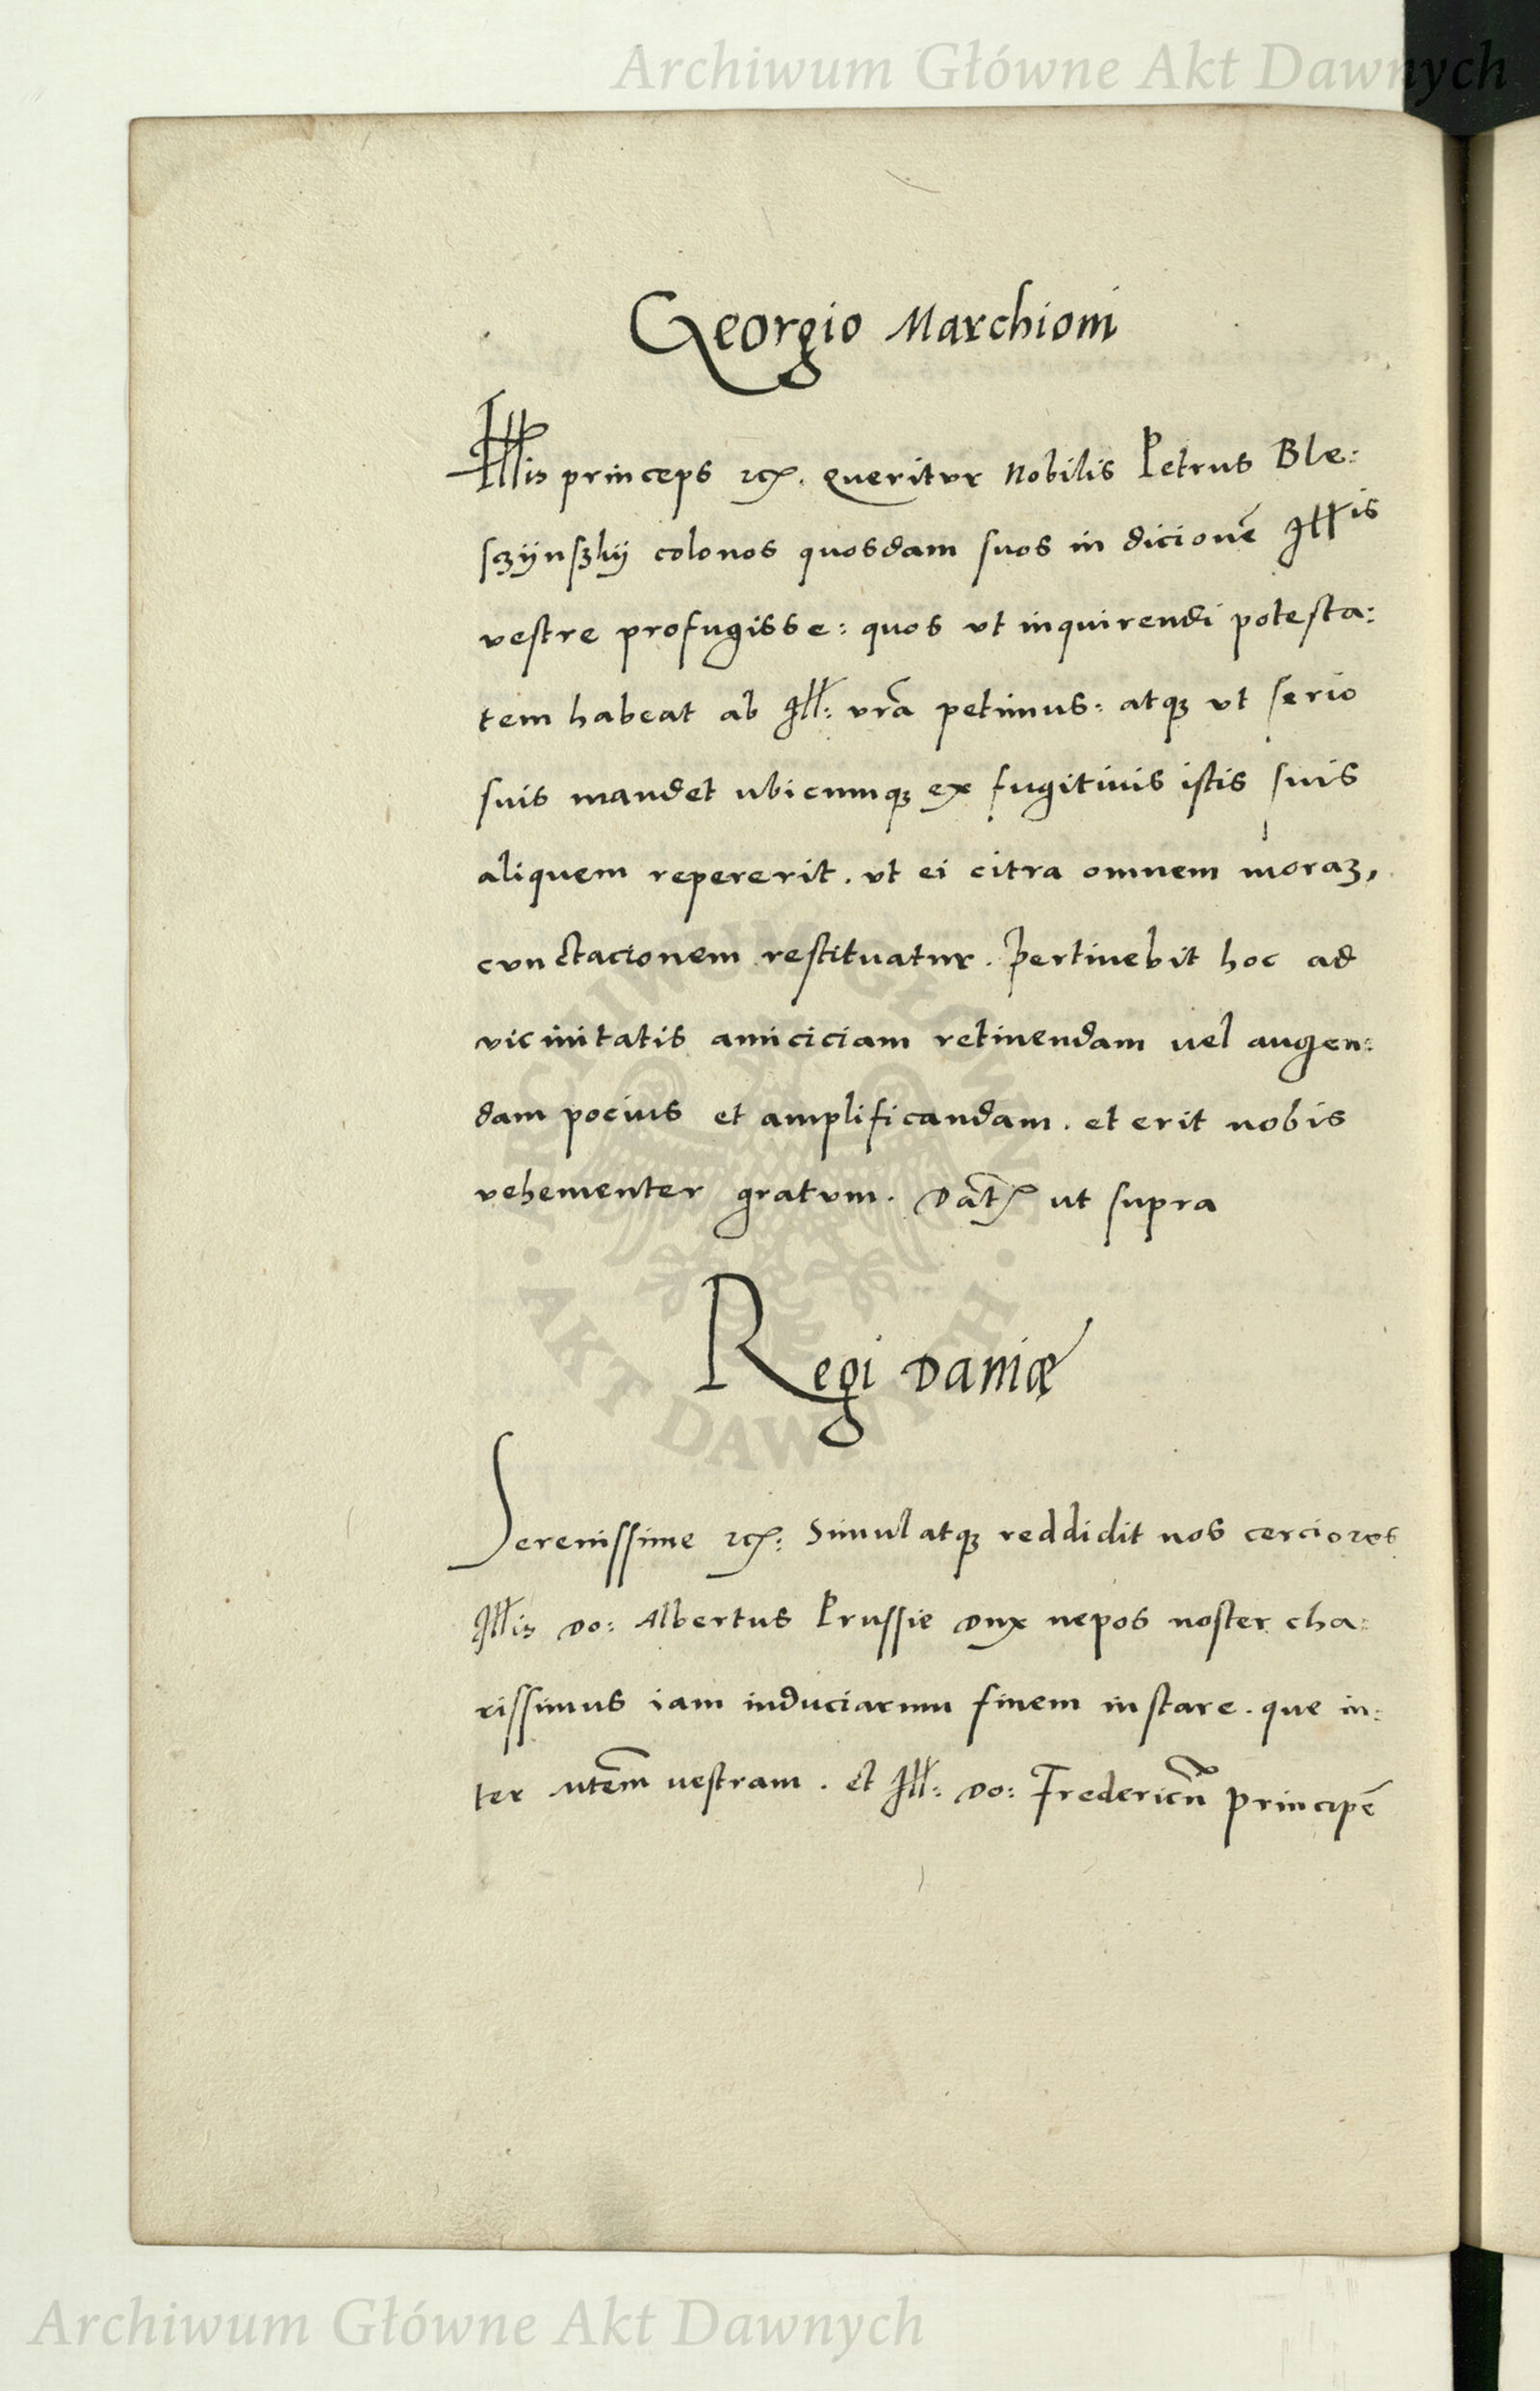 Archiwum Główne Akt Dawnych
Georgio Marchioni
Illis princeps etc. Queritur Nobilis Petrus Ble:
sczÿnszkÿ colonos quosdam suos in dicionē Illis
vestre profugisse: quos vt inquirendi potesta:
tem habeat ab Ill: vrā petimus: atqꝫ vt serio
suis mandet ubicumqꝫ ex fugitiuis istis suis
aliquem repererit. vt ei citra omnem moraꝫ,
cvnctacionem restituatur. Pertinebit hoc ad
vicinitatis amiciciam retinendam uel augen:
dam pocius et amplificandam. et erit nobis
vehementer gratvm. Dat̄ ut supra
Regi Daniæ
Serenissime etc: Simulatqꝫ reddidit nos cerciores
Illis Do: Albertus Prussie Dux nepos noster cha:
rissimus iam induciarum finem instare. que in:
ter Mtem̄ uestram. et Ill: Do: Fredericū Principē
ARCHIWUM GŁÓWNE · AKT DAWNYCH ·
Archiwum Główne Akt Dawnych